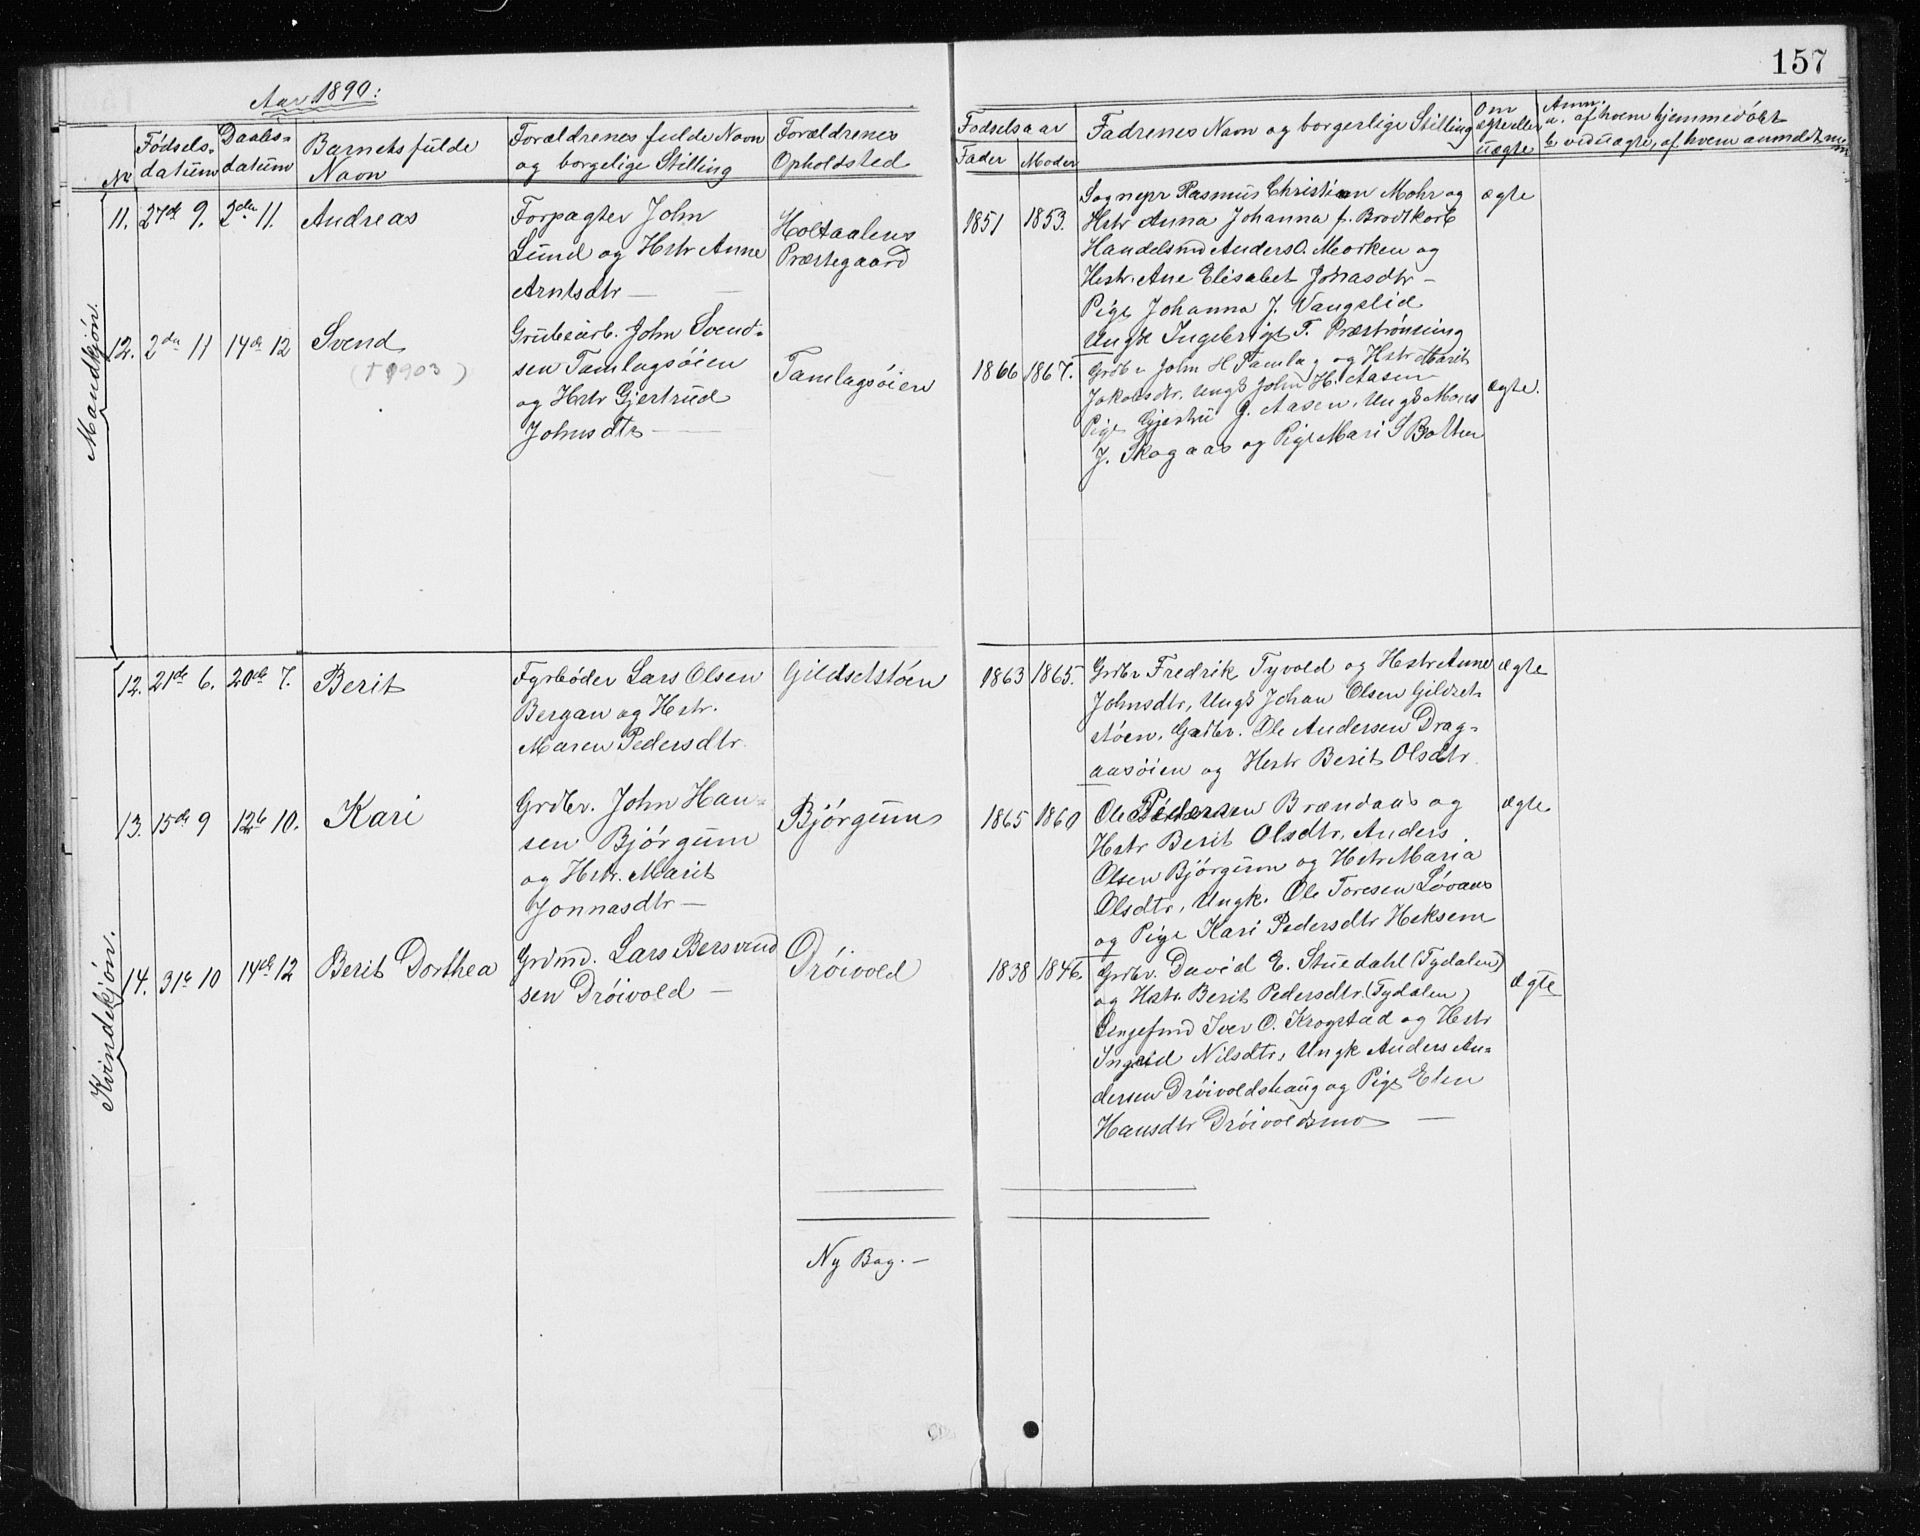 157
Aar 1890:
Nr.
Fødsels-
datum
Daabs-
datum
Barnets fulde
Navn
Forældrenes fulde Navn
og borgelige Stilling
Forældrenes
Opholdsted
Fødselsaar
Fader
Moder
Fadrenes Navn og borgerlige Stilling
Om
ægte eller
uægte
Anm.
a. af hvem hjemmedøbt
b. ved uægte, af hvem anmeldt m.m.
Mandkjøn.
11. 27de 9. 2den 11. Andreas
Forpagter John
Lund og Hstr Anne
Arntsdtr —
Holtaalens
Præstegaard
1851 1853.
Sognepr Rasmus Christian Mohr og
Hstr Anna Johanna f. Brodtkorb
Handelsmd Anders O. Morken og
Hstr. Ane Elisabet Jonasdtr —
Pige Johanna J. Vangslid
Ungk Ingebrigt T. Præstrønning
ægte
12. 2den 11 14de 12 Svend
(† 1903)
Grubearb. John Svend-
sen Tamlagsøien
og Hstr Gjertrud
Johnsdtr —
Tamlagsøien
1866 1867.
Grdbr John H Tamlag og Hstr Marit
Jakobsdtr. Ungk John H. Aasen
Pige Gjertru J. Aasen, Ungk Mons
J. Skogaas og Pige Mari S Bolten
ægte.
Kvindekjøn.
12. 21de 6. 20de 7. Berit
Fyrbøder Lars Olsen
Bergan og Hstr.
Maren Pedersdtr.
Gildsetstøen
1863 1865.
Grdbr Fredrik Tyvold og Hstr Anne
Johnsdtr, Ungk Johan Olsen Gildset-
støen. Grdbr. Ole Andersen Drag-
aasøien og Hstr Berit Olsdtr.
ægte
13. 15de 9 12te 10. Kari
Grdbr. John Han-
sen Bjørgum
og Hstr. Marit
Jonnasdtr —
Bjørgum
1865 1860
Ole Pedersen Brændaas og
Hstr Berit Olsdtr, Anders
Olsen Bjørgum og Hstr Maria
Olsdtr, Ungk. Ole Toresen Løvaas
og Pige Kari Pedersdtr Heksem
ægte
14. 31te 10 14de 12 Berit Dorthea
Grdmd. Lars Bersvend
sen Drøivold —
Drøivold
1838 1846.
Grdbr. David E. Stuedahl (Tydalen)
og Hstr. Berit Pedersdtr. (Tydalen)
Iver O. Krogstad og Hstr
Nilsdtr, Ungk Anders An-
dersen Drøivoldshaug og Pige Elen
Hansdtr Drøivoldsmo —
ægte
Ny Bog. —